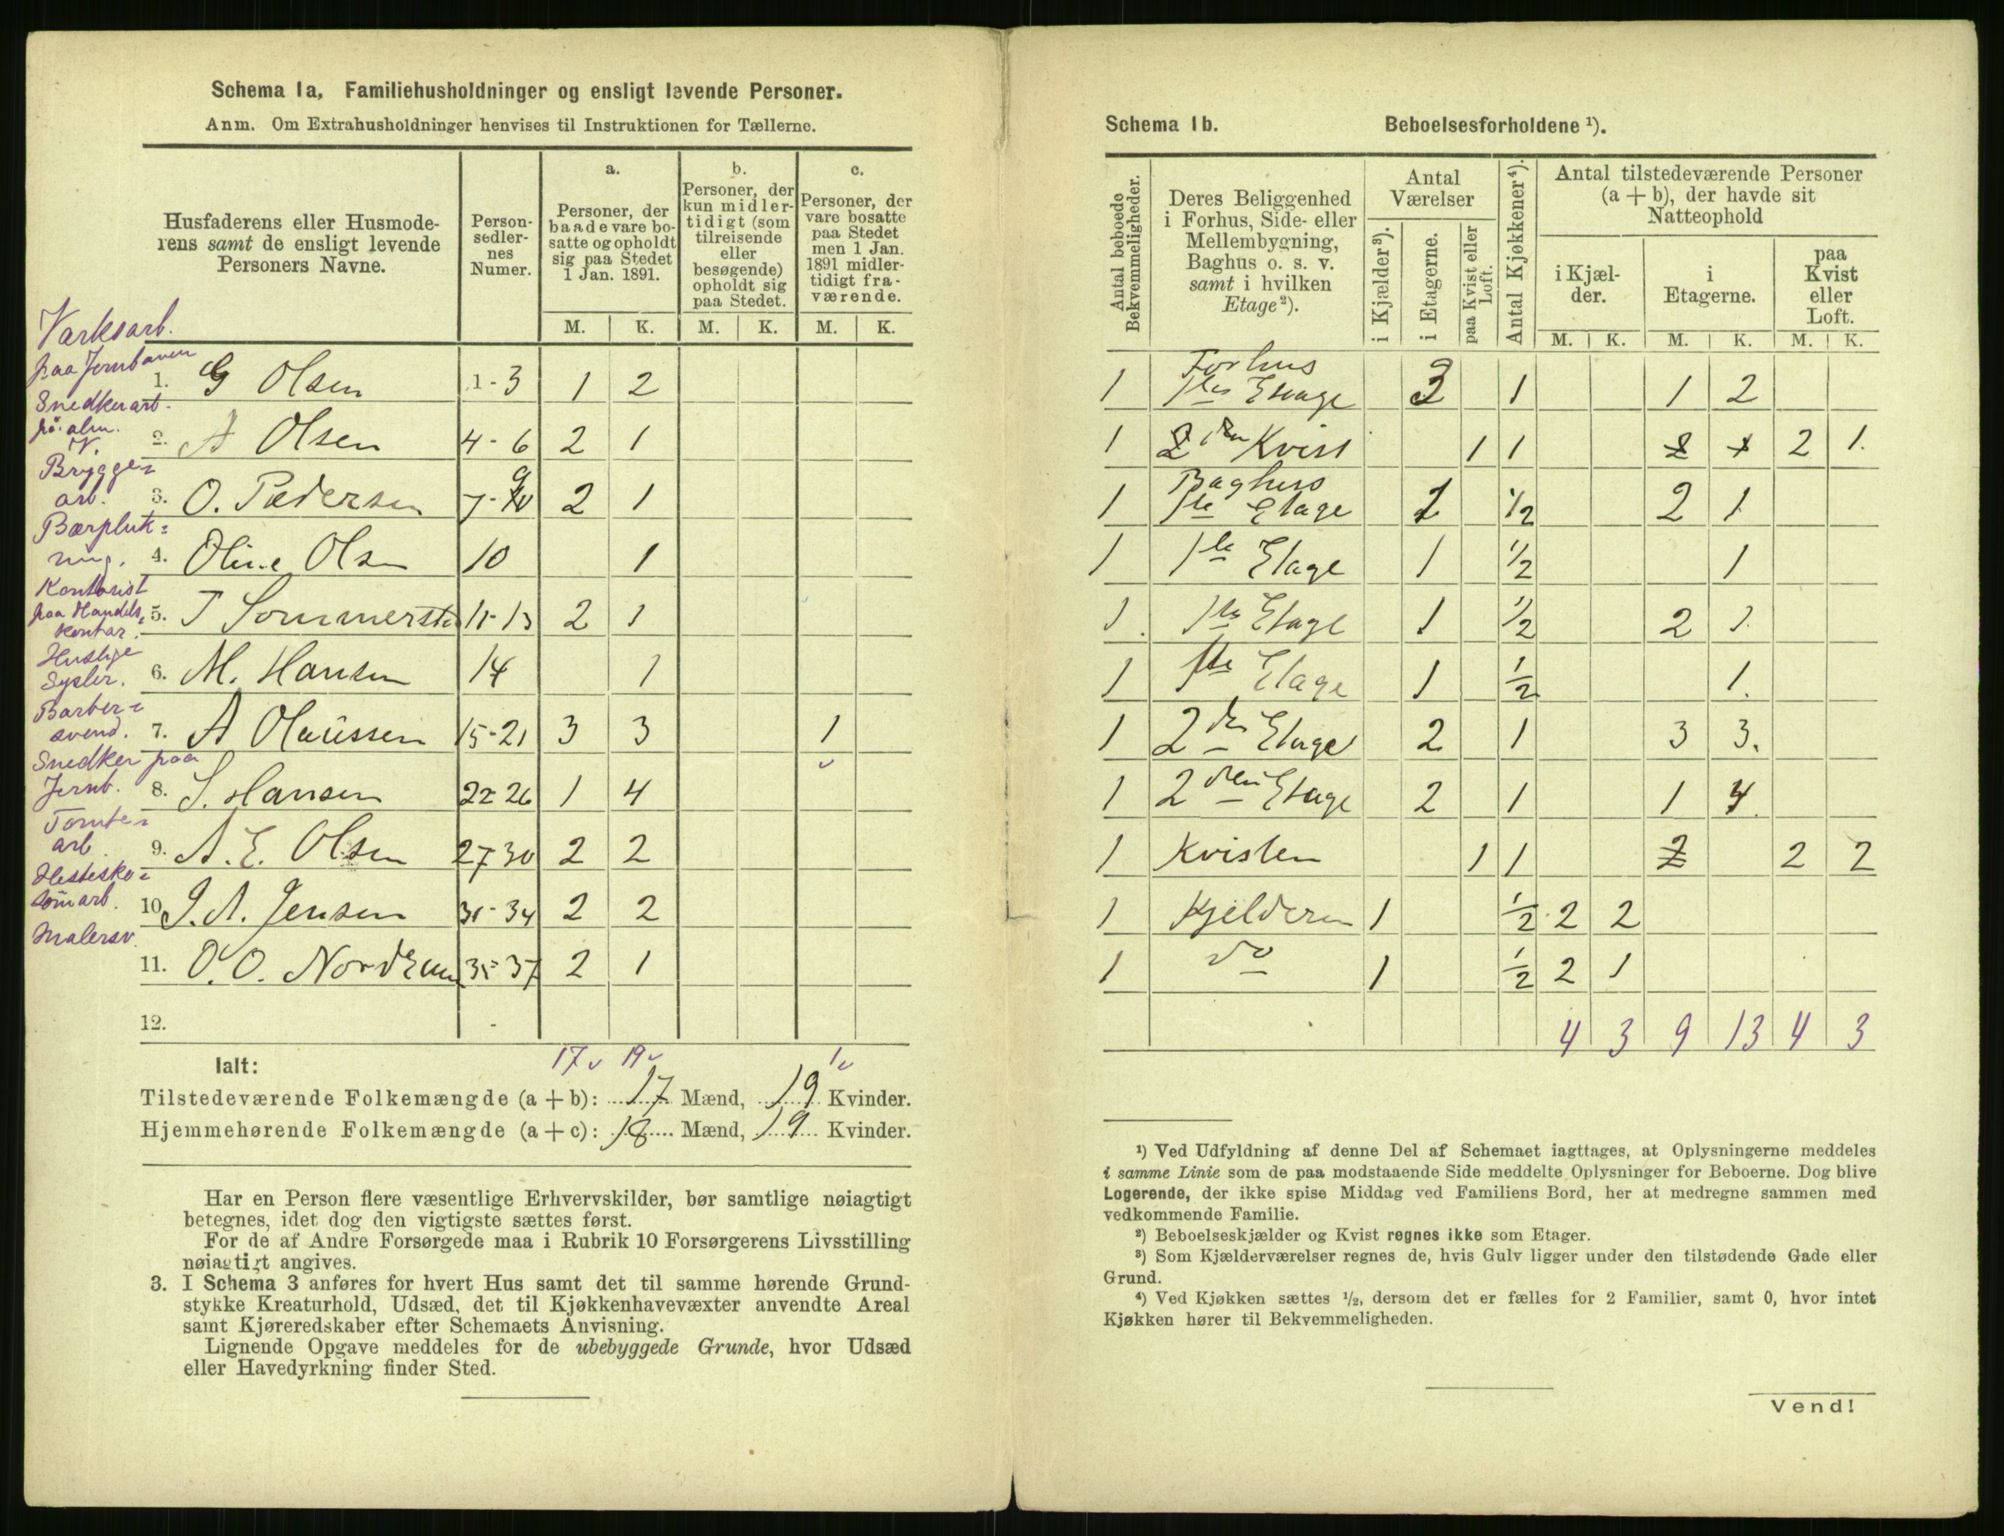 Schema 1a. Familiehusholdninger og ensligt levende Personer.
Anm. Om Extrahusholdninger henvises til Instruktionen for Tællerne.
Husfaderens eller Husmode-
rens samt de ensligt levende
Personers Navne.
Person-
sedler-
nes
Numer.
a.
Personer, der
baade vare bo-
satte og opholdt
sig paa Stedet
1 Jan. 1891.
b.
Personer, der
kun midler-
tidigt (som
tilreisende
eller
besøgende)
opholdt sig
paa Stedet.
c.
Personer, der
vare bosatte
paa Stedet
men 1 Jan.
1891 midler-
tidigt fra-
værende.
M. K. M. K. M. K.
Værksarb.
paa Jernbanen
1. G Olsen 1-3 1 2
Snedkerarb.
2. A Olsen 4-6 2 1
Bryggeri
arb. 3. O. Pedersen 7-9 2 1
Bærpluk-
ning. 4. Oline Olsen 10 1
Kontorist
paa Handels
kontor. 5. T Sommerst 11-13 2 1
Huslige
Sysler. 6. M. Hansen 14 1
Barber-
svend. 7. A Olaussen 15-21 3 3 1
Snedker paa
Jernb. 8. S. Hansen 22-26 1 4
Tomte-
arb. 9. A. E. Olsen 27-30 2 2
Hestesko-
sömarb. 10. J. A. Jensen 31-34 2 2
Malersv.
11. O. O. Nordrum 35-37 2 1
12.
17 19 1
Ialt:
Tilstedeværende Folkemængde (a + b): 17 Mænd, 19 Kvinder.
Hjemmehørende Folkemængde (a + c): 18 Mænd, 19 Kvinder.
Har en Person flere væsentlige Erhvervskilder, bør samtlige nøiagtigt
betegnes, idet dog den vigtigste sættes først.
For de af Andre Forsørgede maa i Rubrik 10 Forsørgerens Livsstilling
nøiagtigt angives.
3. I Schema 3 anføres for hvert Hus samt det til samme hørende Grund-
stykke Kreaturhold, Udsæd, det til Kjøkkenhavevæxter anvendte Areal
samt Kjøreredskaber efter Schemaets Anvisning.
Lignende Opgave meddeles for de ubebyggede Grunde, hvor Udsæd
eller Havedyrkning finder Sted.
Schema 1b. Beboelsesforholdene ¹).
Antal beboede
Bekvemmeligheder.
Deres Beliggenhed
i Forhus, Side- eller
Mellembygning,
Baghus o. s. v.
samt i hvilken
Etage ²).
Antal
Værelser
i Kjælder ³).
i Etagerne.
paa Kvist eller
Loft.
Antal Kjøkkener ⁴).
Antal tilstedeværende Personer
(a + b), der havde sit
Natteophold
i Kjæl-
der.
i
Etagerne.
paa
Kvist
eller
Loft.
M. K. M. K. M. K.
Forhus
1 1ste Etage 3 1 1 2
1 2den Kvist 1 1 2 1 2 1.
Baghus
1 1ste Etage 1 1/2 2 1
1 1ste Etage 1 1/2 1
1. 1ste Etage 1 1/2 2 1.
1 1ste Etage 1 1/2 1.
1 2den Etage 2 1 3 3.
1 2den Etage 2 1 1 4
1 Kvisten 1 1 2 2 2
1 Kjelderen 1 1/2 2 2
1 do 1 1/2 2 1
4 3 9 13 4 3
¹) Ved Udfyldning af denne Del af Schemaet iagttages, at Oplysningerne meddeles
i samme Linie som de paa modstaaende Side meddelte Oplysninger for Beboerne. Dog blive
Logerende, der ikke spise Middag ved Familiens Bord, her at medregne sammen med
vedkommende Familie.
²) Beboelseskjælder og Kvist regnes ikke som Etager.
³) Som Kjælderværelser regnes de, hvis Gulv ligger under den tilstødende Gade eller
Grund.
⁴) Ved Kjøkken sættes ½, dersom det er fælles for 2 Familier, samt 0, hvor intet
Kjøkken hører til Bekvemmeligheden.
Vend!